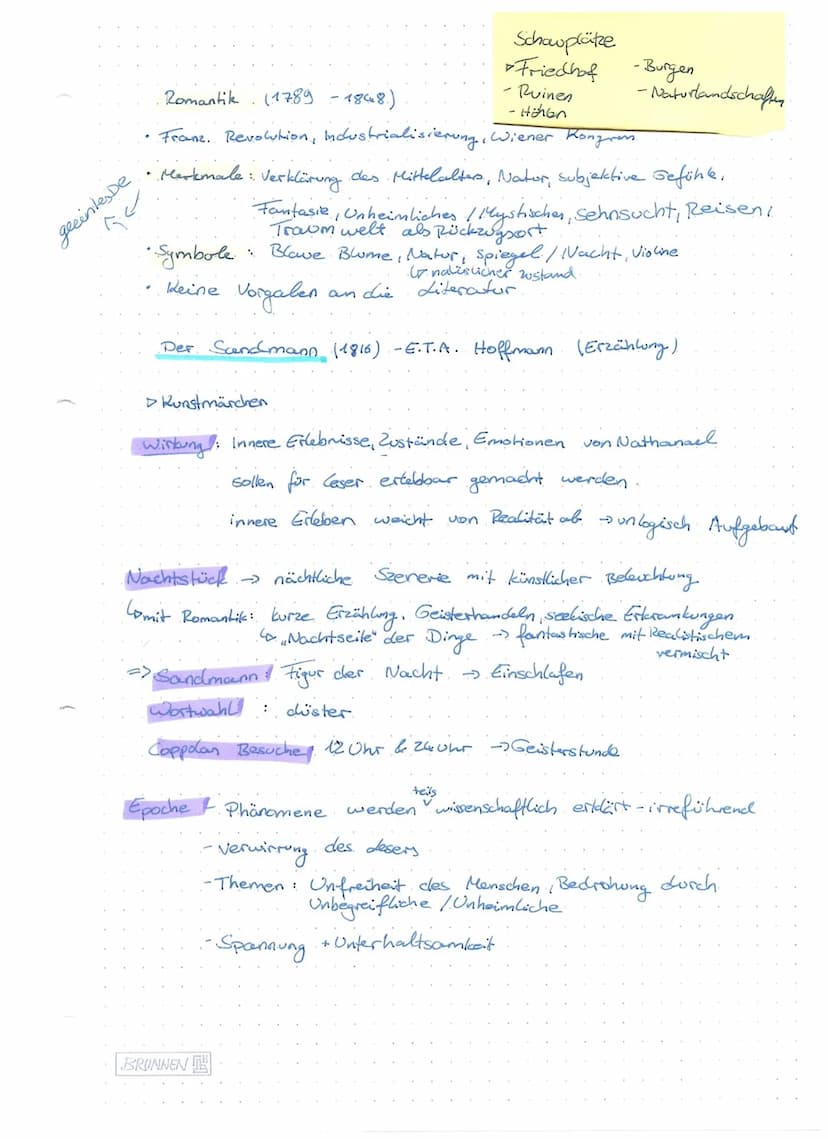 Schauplätze
▷ Friedhof
- Ruinen
- Höhlen
- Burgen
- Naturlandschaften
Romantik (1789 - 1848)
• Franz. Revolution, Industrialisierung, Wiener Kongress
geeintes DE
• Merkmale: Verklärung des Mittelalters, Natur, subjektive Gefühle,
Fantasie, Unheimliches / Mystisches, Sehnsucht, Reisen,
Traumwelt als Rückzugsort
• Symbole: Blaue Blume, Natur, Spiegel / Nacht, Violine
↳ natürlicher Zustand
• Keine Vorgaben an die Literatur
Der Sandmann (1816) - E.T.A. Hoffmann (Erzählung)
▷ Kunstmärchen
Wirkung: Innere Erlebnisse, Zustände, Emotionen von Nathanael
sollen für Leser erlebbar gemacht werden.
innere Erleben weicht von Realität ab → unlogisch Aufgebaut
Nachtstück → nächtliche Szenerie mit künstlicher Beleuchtung
↳ mit Romantik: kurze Erzählung, Geisterhandeln, seelische Erkrankungen
↳ „Nachtseite“ der Dinge → fantastische mit Realistischem
vermischt
=> Sandmann: Figur der Nacht → Einschlafen
Wortwahl: düster
Besuche, 12 Uhr & 24 Uhr → Geisterstunde
Epoche - Phänomene werden teils wissenschaftlich erklärt - irreführend
- Verwirrung des Lesers
- Themen: Unfreiheit des Menschen, Bedrohung durch
Unbegreifliche / Unheimliche
- Spannung + Unterhaltsamkeit
BRUNNEN